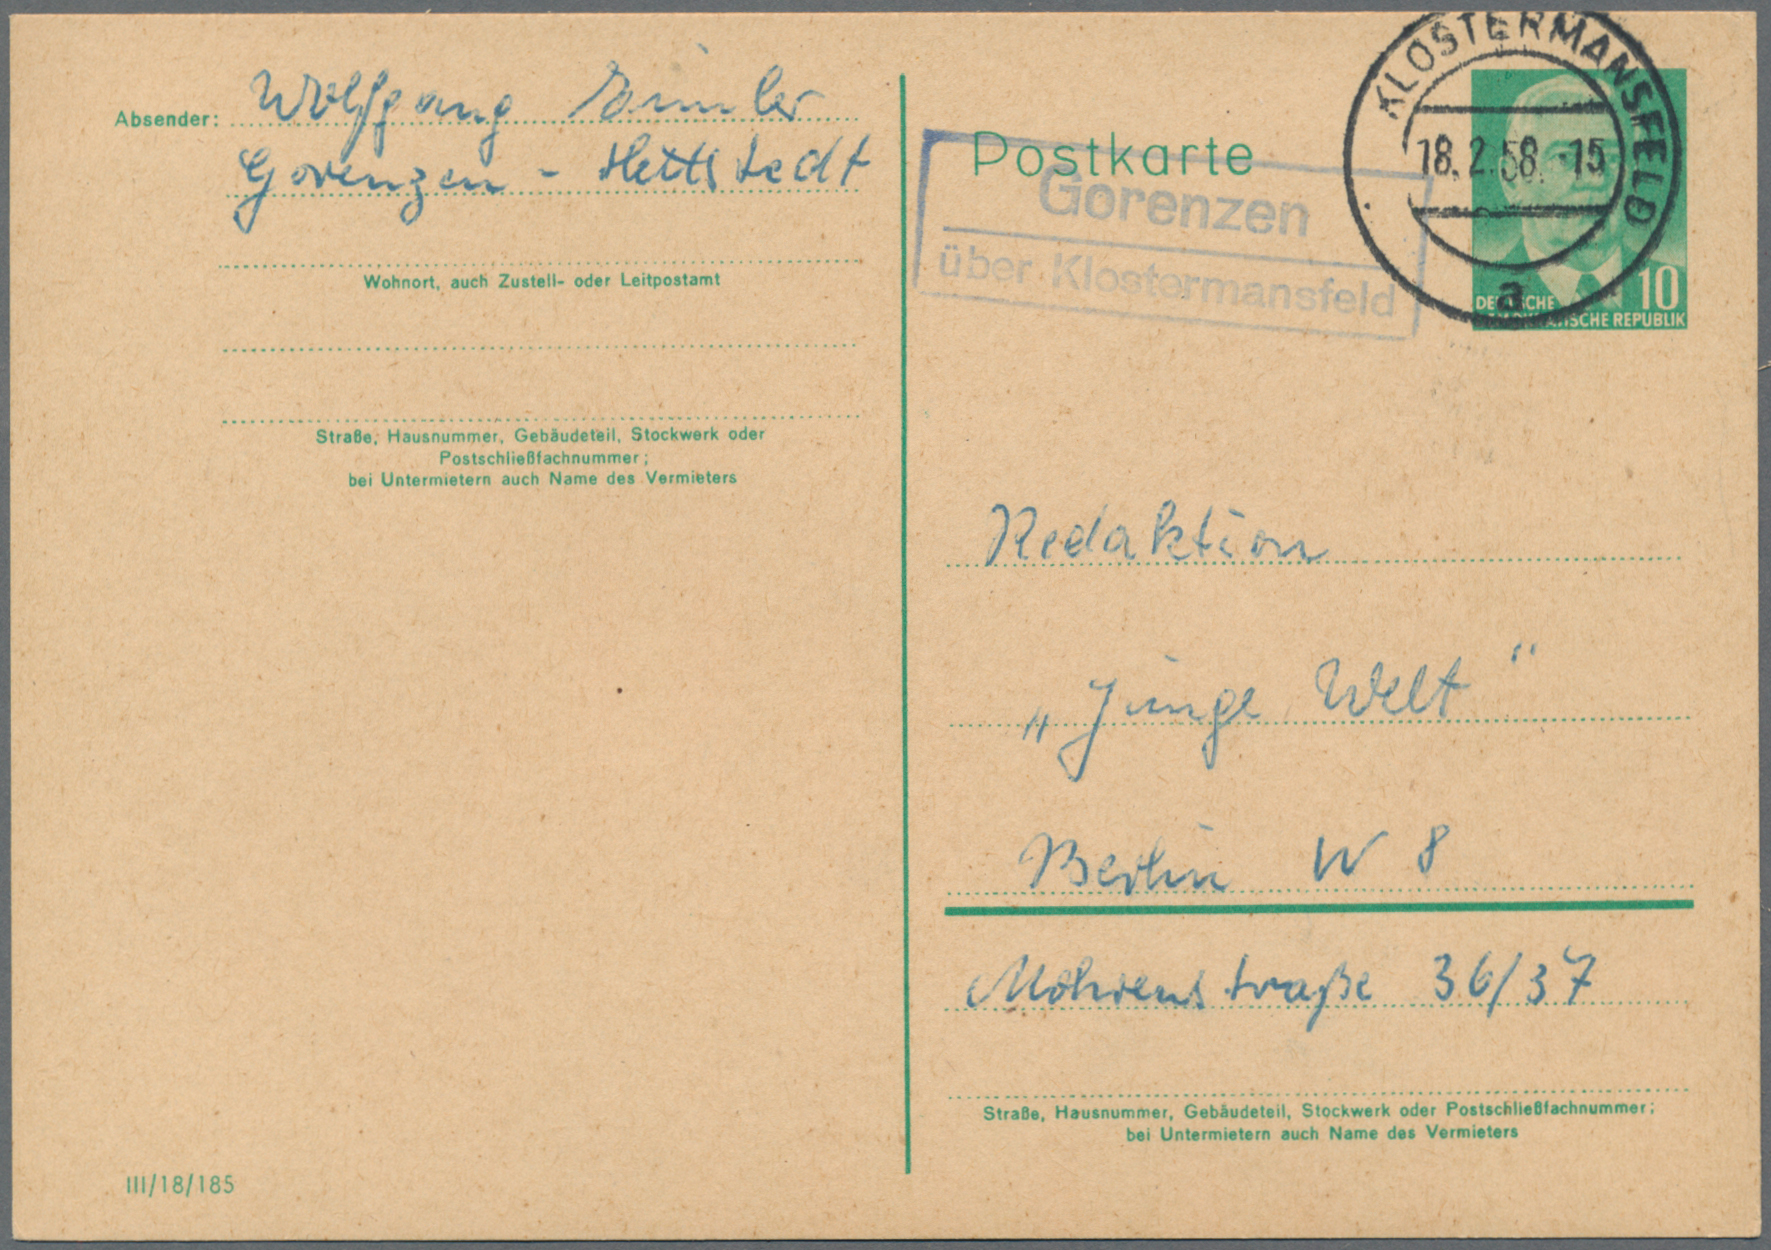 Absender: Wolfgang
Gorenzen - Hettstedt
Wohnort, auch Zustell- oder Leitpostamt
Straße, Hausnummer, Gebäudeteil, Stockwerk oder
Postschließfachnummer;
bei Untermietern auch Name des Vermieters
III/18/185
Postkarte
Gorenzen
über Klostermansfeld
KLOSTERMANSFELD
18.2.58.-15
a
10
DEUTSCHE
DEMOKRATISCHE REPUBLIK
Redaktion
„Junge Welt“
Berlin W 8
Mohrenstraße 36/37
Straße, Hausnummer, Gebäudeteil, Stockwerk oder Postschließfachnummer;
bei Untermietern auch Name des Vermieters